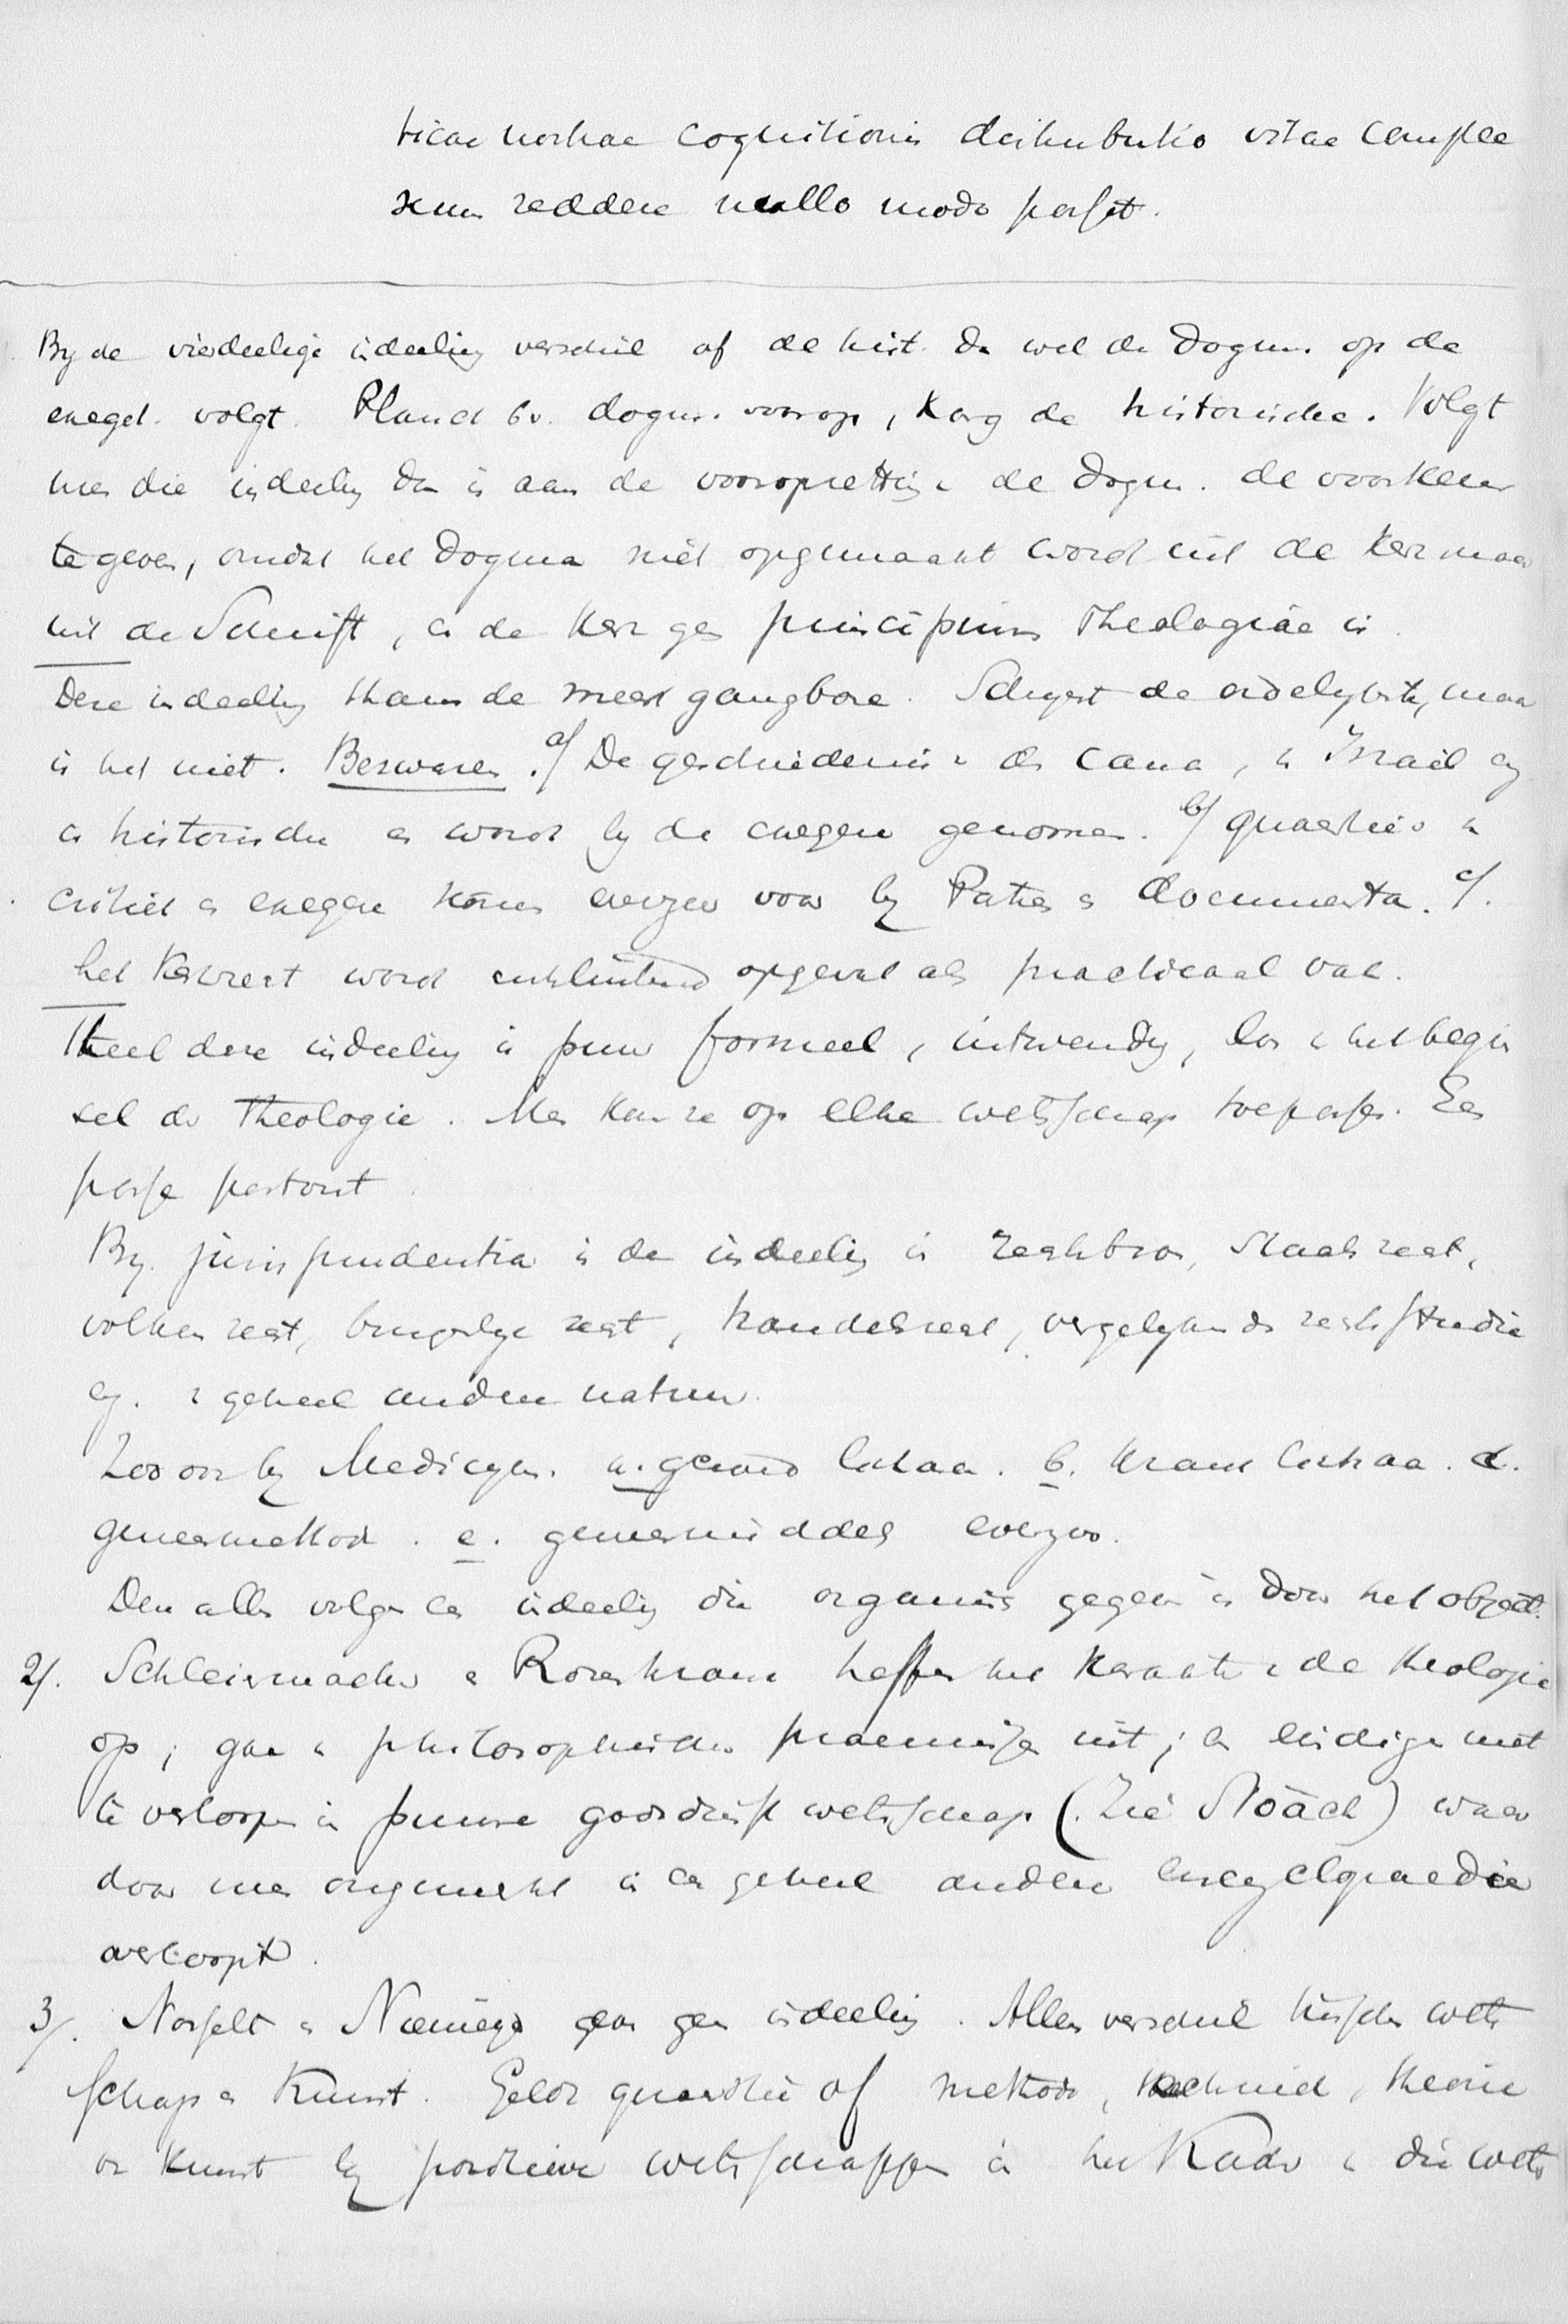 ticae nostrae cognitionis distributio vitae complee
xum reddere nullo modo possit.
By de vierdeelige indeeling verschil of de hist. dan wel de Dogm. op de
exeget. volgt. Planck bv. dogm. voorop, de historische. Volgt
men die indeeling dan is aan de vooropzetting v de Dogm. de voorkeur
te geven, omdat het Dogma niet opgemaakt word uit de kerk maar
uit de Schrift, en de kerk geen principium Theologiae is.
Deze indeeling thans de meest gangbare. Schynt de ordelykste, maar
is het niet. Bezwaren. a/ De geschiedenis v de Cano, v Israel
is historische en word by de exegese genomen. b/ quaestie's v
critiek en exegese komen evenzeer voor by Patres en documenta. c/.
het Kerkrecht word uitsluitend opgevat als practicaal vak.
Heel deze indeeling is puur formeel, uitwendig, los v het begin
sel der Theologie. Men kan ze op elke wetsschap toepassen. Een
passe partout.
By jurisprudentia is de indeeling in rechtsbron, Staatsrecht,
volkenrecht, burgerlyk recht, handelsrecht, vergelykende rechtsstudie
v geheel andere natuur.
Zoo ook by Medicynen. a. gezond lichaam. b. krank lichaam. d.
geneesmethode. e. geneesmiddelen evenzoo.
Deze alle volgen een indeeling die organisch gegeven is door het object.
2/. Schleiermacher en Rosenkranz heffen het karakter v de theologie
op; gaan v philosophische praemissen uit; en eindigen met
te verloopen in puure godsdienst wetsschap (Zie Noack) waar
door men ongemerkt in een geheel andere encyclopaedie
verloopt.
3/. Nösselt en Niemeyer geven geen indeeling. Alleen verschil tusschen wets
schap en Kunst. Geldt quaestie of methode, techniek, theorie
en kunst by positieve wetsschappen in het Kader v die wets